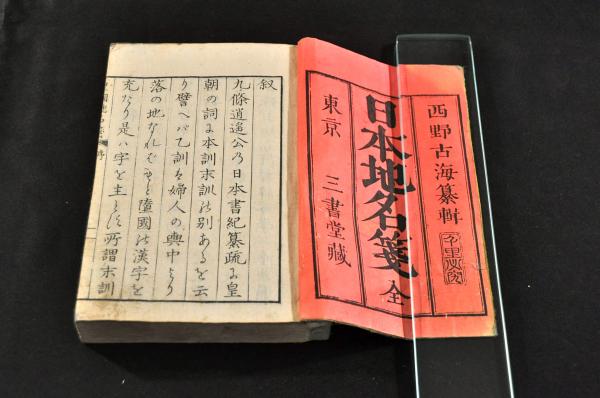 西野古海纂輯
日本地名箋 全
東京 三書堂藏
叙
九條逍遥公乃日本書紀纂疏に皇
朝の詞に本訓末訓の別あるを云
り譬へバ乙訓を婦人の輿中より
落の地なれバ
墮國の漢字を
充たり是ハ字を主とす所謂末訓